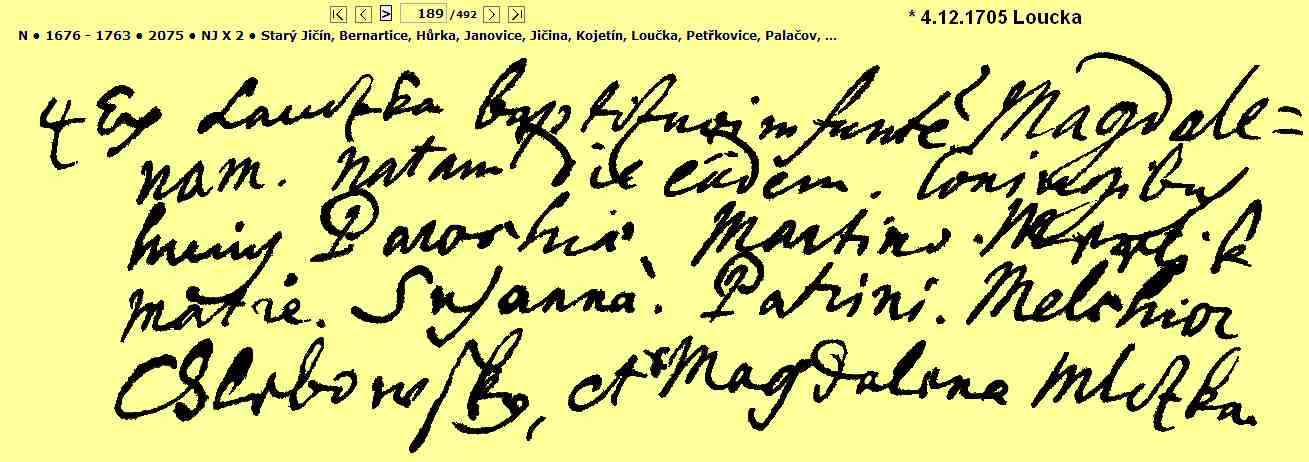 189 /492
* 4.12.1705 Loucka
N ● 1676 - 1763 ● 2075 ● NJ X 2 ● Starý Jičín, Bernartice, Hůrka, Janovice, Jičina, Kojetín, Loučka, Petřkovice, Palačov, ...
4 Ex Lautzka baptisavi infantē Magdale=
nam. natam die eādem. Coniugibus
huius Parochiæ, Martino
matre. Susanna. Patrini. Melchior
et Magdalena Mletzka.